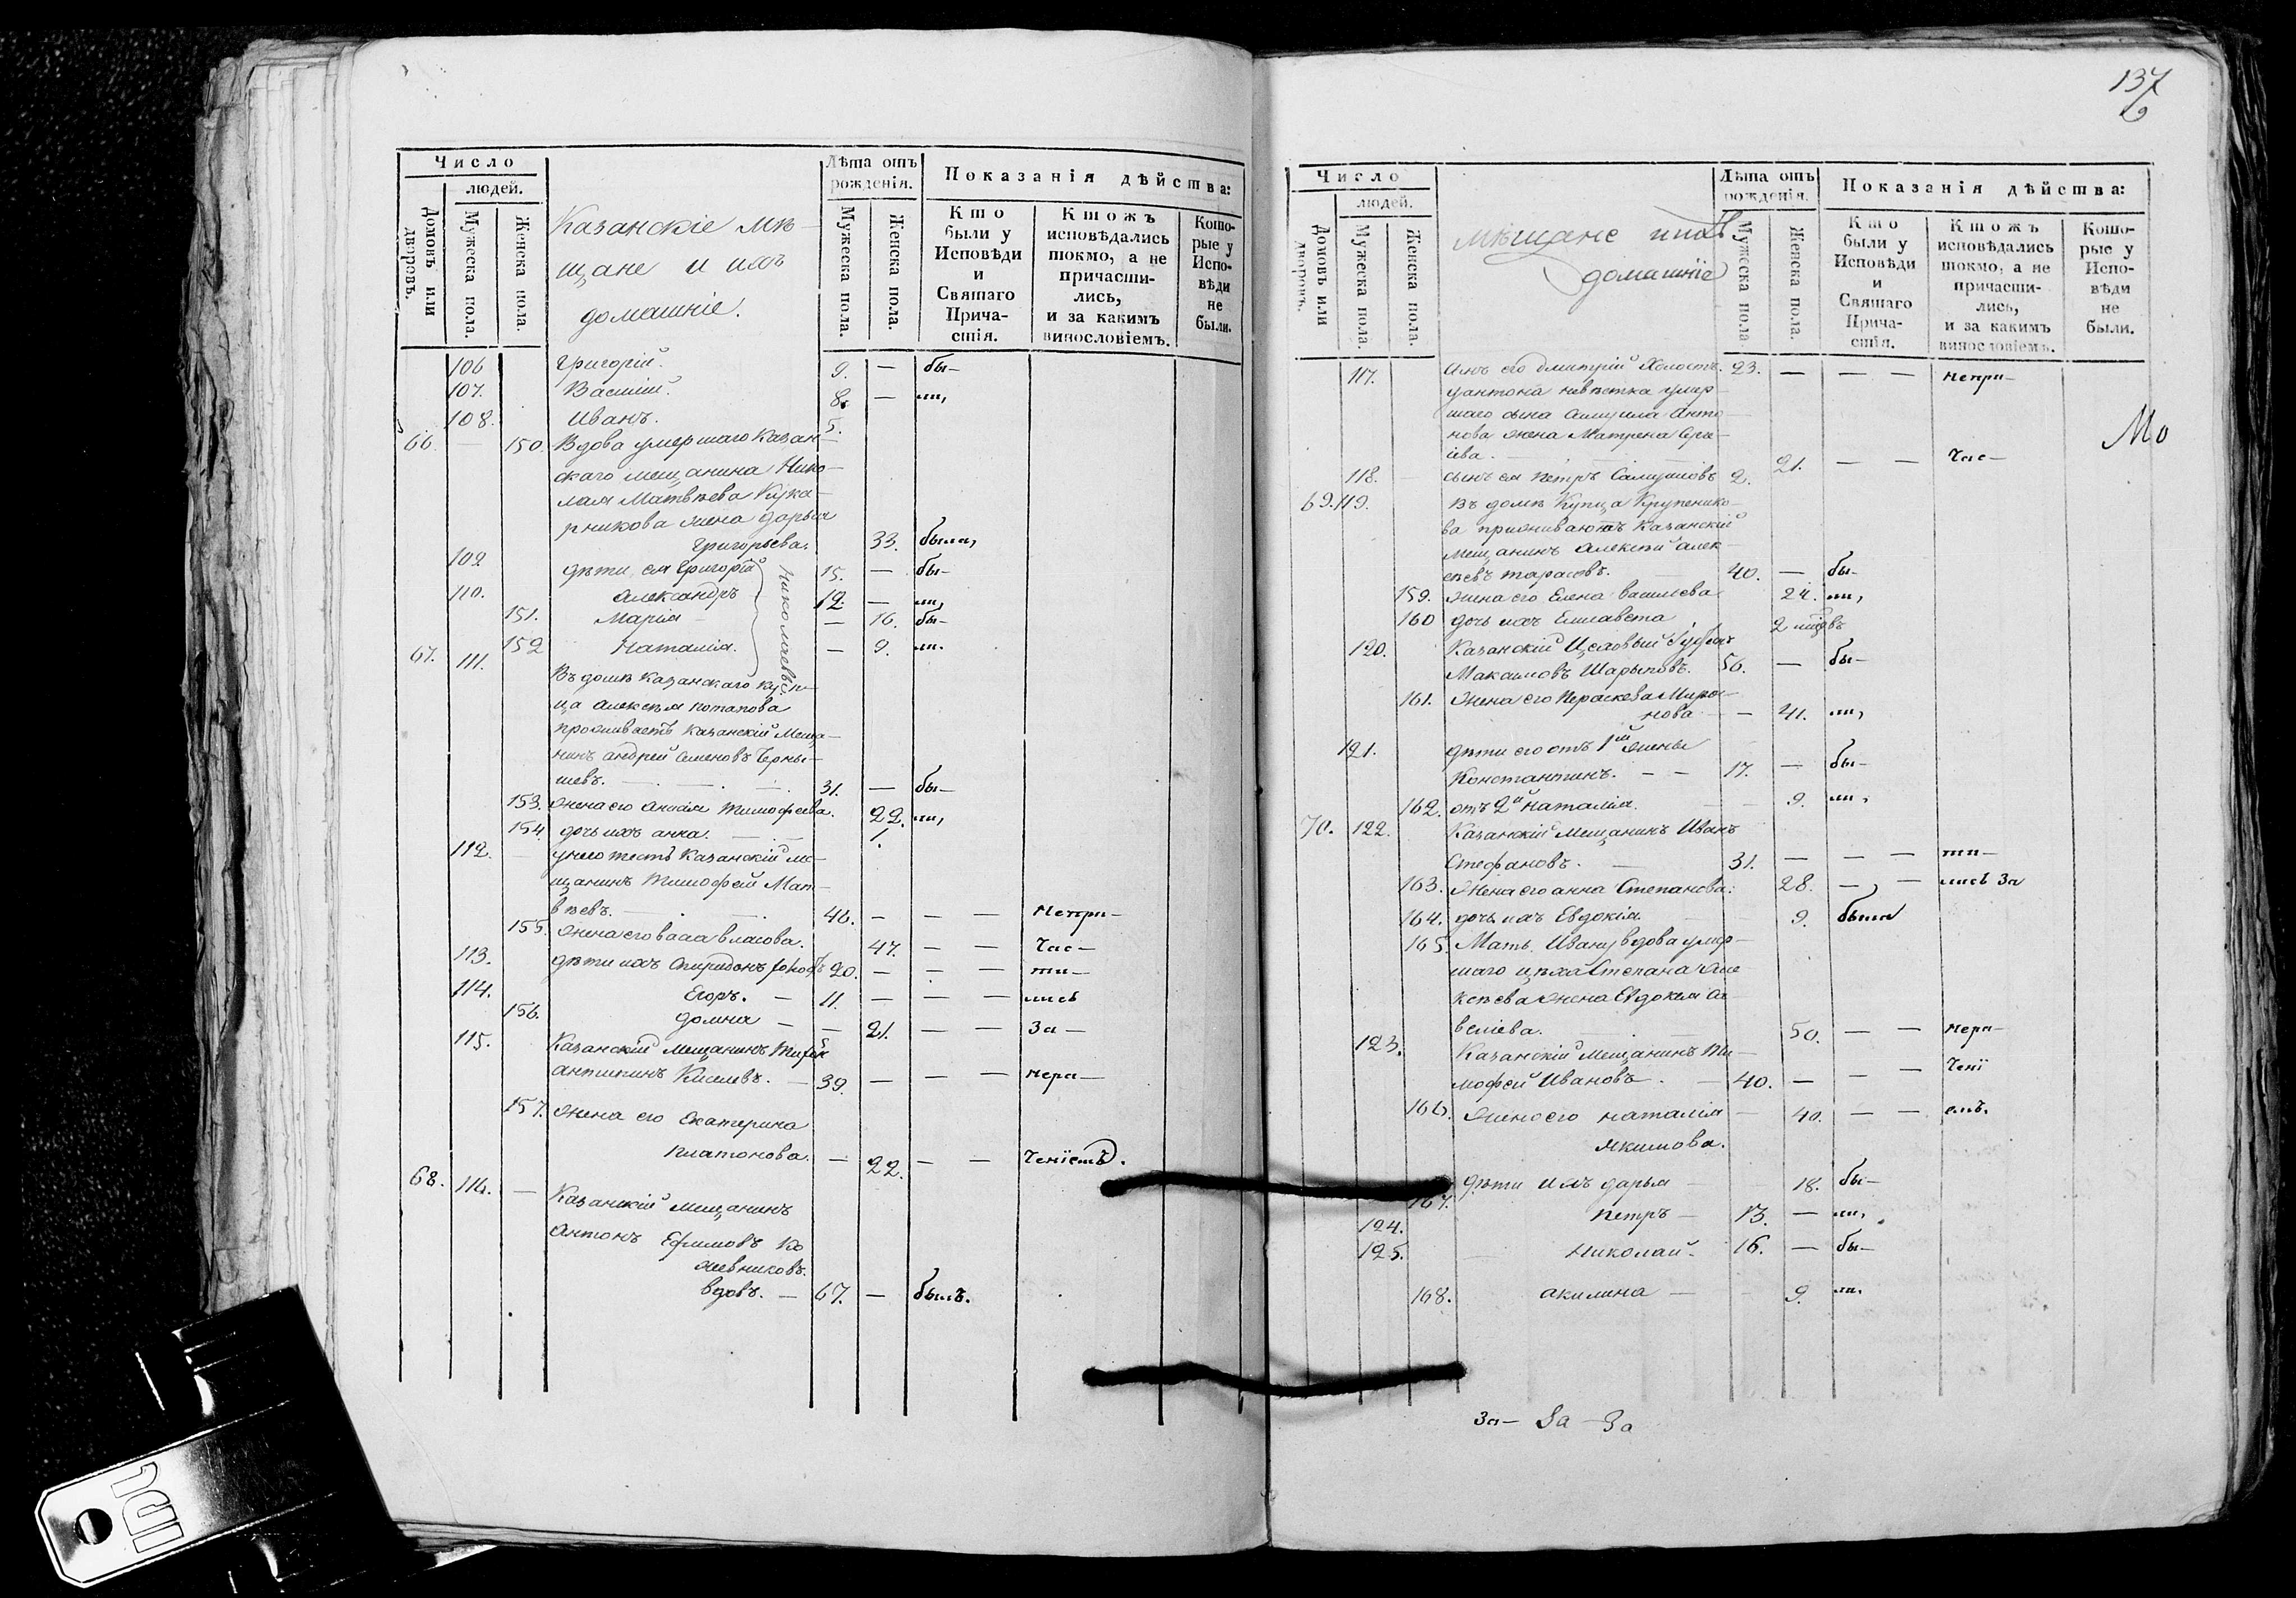 137
Число
людей.
Домовъ или дворовъ.
Мужеска пола.
Женска пола.
Казанскіе мѣ-
щане и ихъ
домашніе.
Лѣта отъ рожденія.
Мужеска пола.
Женска пола.
Показанія дѣйства:
Кто были у Исповѣди и Святаго Прича- стія.
Ктожъ исповѣдались токмо, а не причасти- лись, и за какимъ винословіемъ.
Кото- рые у Испо- вѣди не были.
106 Григорій. 9. — бы-
107. Василій. 8. — ли,
108. Иванъ. 5.
66. — 150. Вдова умершаго Казан-
скаго мещанина Нико-
лая Матвѣева
жена Дарья
Григорьева. 33. была,
109 дѣти ея Григорій 15. — бы-
110. Александръ 12. — ли,
151. Марія — 10. бы-
152 Наталія. — 9. ли.
Николаевы
67. 111. Въ домѣ Казанскаго куп-
ца Алексѣя Потапова
проживаетъ Казанскій Меща-
нинъ Андрей Семеновъ Черны-
шевъ. 31. — бы-
153. жена его Тимофеева. 22. ли,
154 дочь ихъ Анна. 1.
112. — у него тесть Казанскій ме-
щанинъ Тимофей Мат-
вѣевъ. 46. — — — Непри-
155. жена его Васса Власова. 47. — — Час-
113. дѣти ихъ Спиридонъ холос. 20. — — — ти-
114. Егоръ. — 11. — — — лись
156. Домна — — 21. — — За-
115. Казанскій Мещанинъ
Антипинъ Киселевъ. — 39. — — — нера-
157. жена его Екатерина
Платонова. — 22. — — ченіемъ.
68. 116. — Казанскій мещанинъ
Антонъ Ефимовъ Ко
жевниковъ.
вдовъ. — 67. — былъ.
Число
людей.
Домовъ или дворовъ.
Мужеска пола.
Женска пола.
Мѣщане и ихъ
домашніе
Лѣта отъ рожденія.
Мужеска пола
Женска пола.
Показанія дѣйства:
Кто были у Исповѣди и Святаго Прича- стія.
Ктожъ исповѣдались токмо, а не причасти- лись, и за какимъ винословіемъ.
Кото- рые у Испо- вѣди не были.
117. сынъ его Дмитрій Холостъ. 23. — — — непри-
у Антона невѣстка умер-
шаго сына Самуила Анто-
нова жена Матрена Сер-
іева. 21. — — час-
Мо
118. сынъ ея Петръ Самуиловъ 2.
69. 119. Въ домѣ Купца Крупенико-
ва проживаютъ Казанскій
мещанинъ Алексѣй Алек-
сѣевъ Тарасовъ. 40. — бы-
159. жена его Елена Васильева 24. ли,
160 дочь ихъ Елисавета 2
120. Казанскій Цеховый
Максимовъ Шарыповъ. 56. — бы-
161. Жена его Параскева Миро-
нова — — 41. ли,
121. дѣти его отъ 1й жены
Константинъ. — — 17. — бы-
162. отъ 2й Наталія. 9. ли,
70. 122. Казанскій Мещанинъ Иванъ
Стефановъ. 31. — — — ти-
163. Жена его Анна Степанова. 28. — — лись За
164. дочь ихъ Евдокія. 9. была
165. Мать Ивану вдова умер-
шаго цеха Степана Але
ксѣева жена Евдокія Са-
веліева. 50. — — нера-
123. Казанскій Мещанинъ Ти-
мофей Ивановъ. — 40. — — — чені
166. Жена его Наталія — 40. — — емъ.
Якимова.
167. дѣти ихъ Дарья 18. бы-
124. Петръ — 13. — ли,
125. Николай- 16. — бы-
168. Акилина — 9. ли.
За- За -За